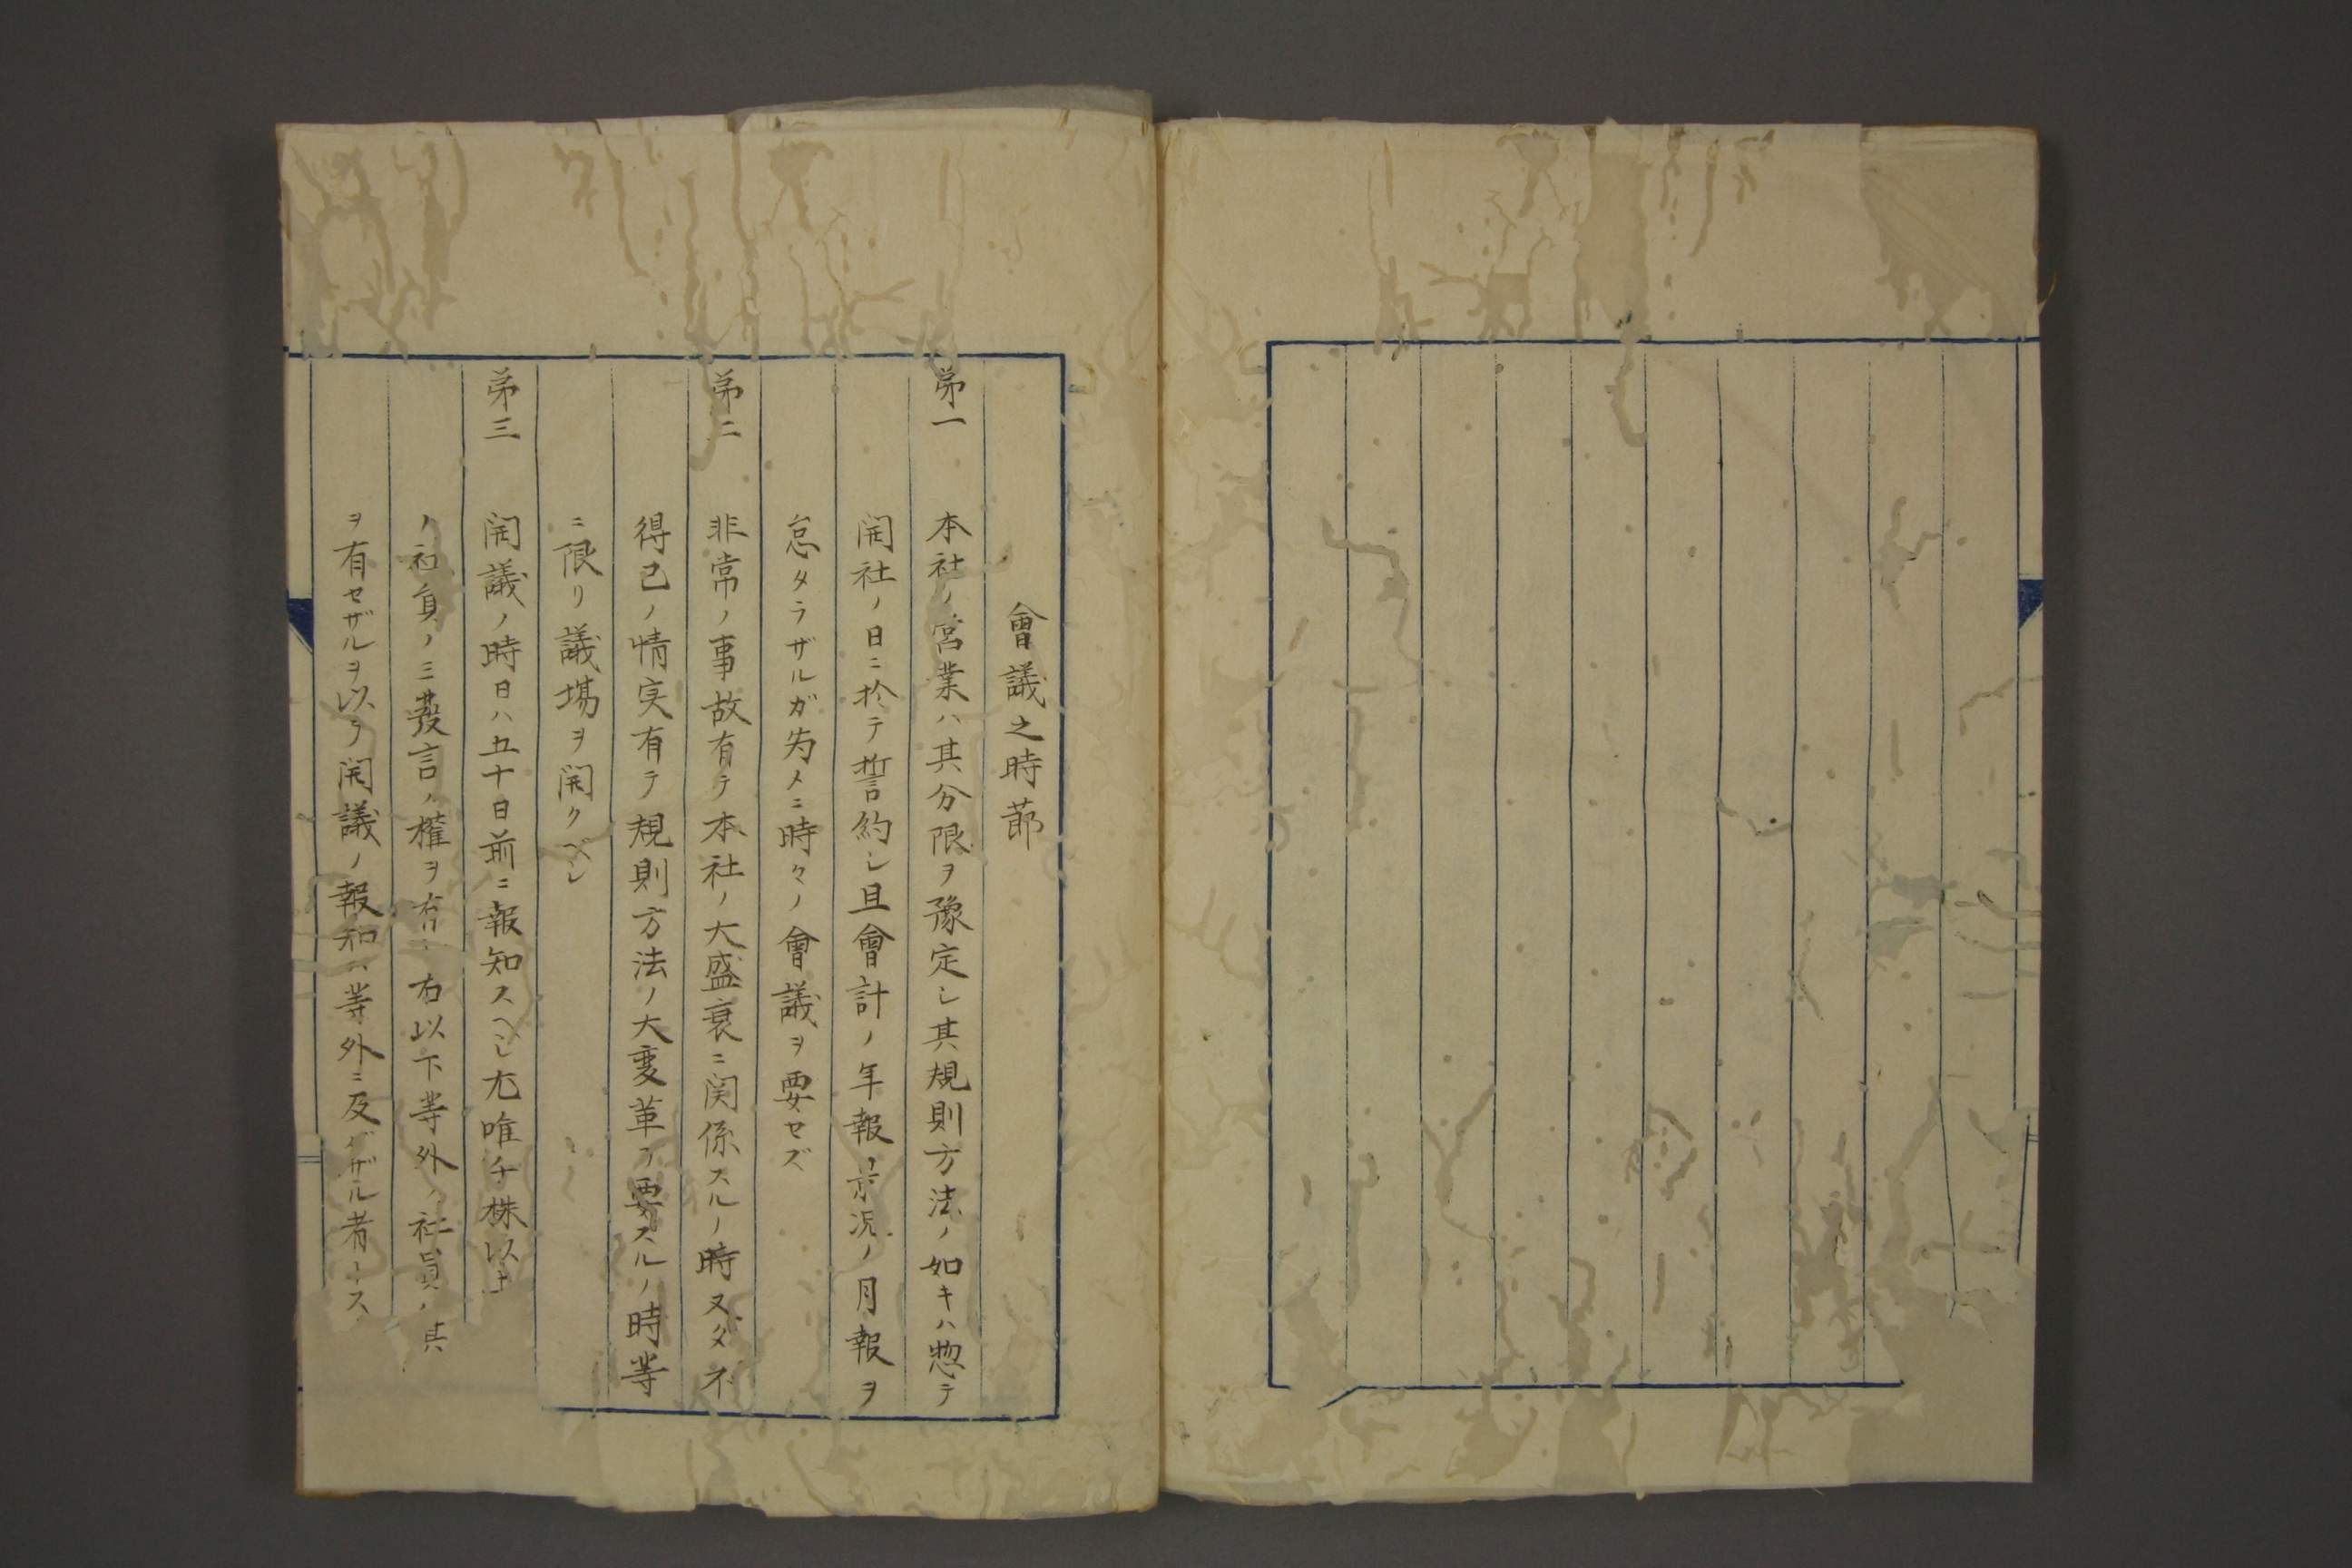 會議之時節
第一 本社ノ営業ハ其分限ヲ豫定シ其規則方法ノ如キハ惣テ
開社ノ日ニ於テ誓約シ且會計ノ年報ノ景況ノ月報ヲ
怠タラザルガ為メニ時々ノ會議ヲ要セズ
第二 非常ノ事故有テ本社ノ大盛衰ニ関係スルノ時又ダ不
得已ノ情実有テ規則方法ノ大変革ヲ要スルノ時等
ニ限リ議場ヲ開クベシ
第三 開議ノ時日ハ五十日前ニ報知スヘシ尤唯千株以上
ノ社員ノミ發言ノ権ヲ有シ右以下等外ノ社員ノ其
ヲ有セザルヲ以テ開議ノ報知ハ等外ニ及バザル者トス